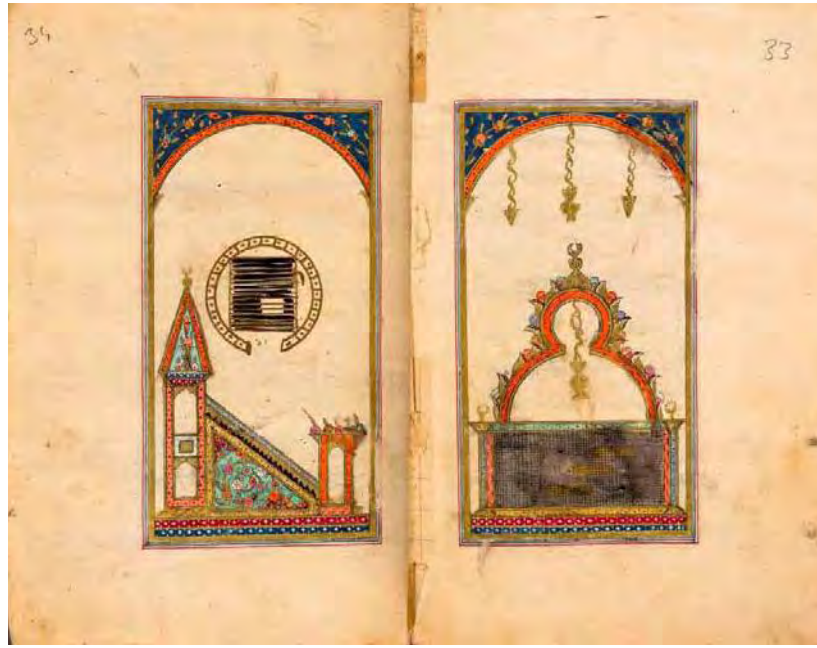 34
33